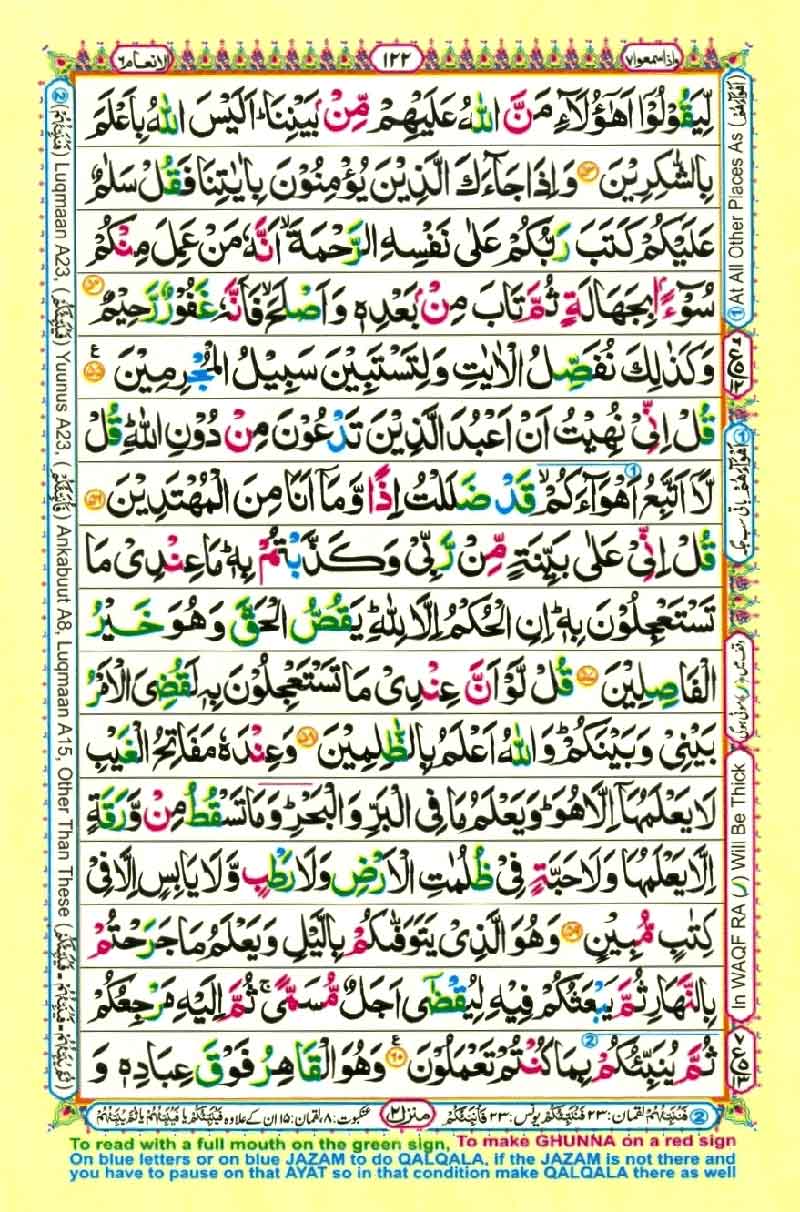 الانعام ٦
١٢٢
واذا سمعوا ٧
لِّيَقُوْلُوْۤا اَهٰۤؤُلَآءِ مَنَّ اللّٰهُ عَلَيْهِمْ مِّنْۢ بَيْنِنَا ؕ اَلَيْسَ اللّٰهُ بِاَعْلَمَ
بِالشّٰكِرِيْنَ ۝۵۳ وَاِذَا جَآءَكَ الَّذِيْنَ يُؤْمِنُوْنَ بِاٰيٰتِنَا فَقُلْ سَلٰمٌ
عَلَيْكُمْ كَتَبَ رَبُّكُمْ عَلٰى نَفْسِهِ الرَّحْمَةَ ۙ اَنَّهٗ مَنْ عَمِلَ مِنْكُمْ
سُوْٓءًۢا بِجَهَالَةٍ ثُمَّ تَابَ مِنْۢ بَعْدِهٖ وَاَصْلَحَ ۙ فَاَنَّهٗ غَفُوْرٌ رَّحِيْمٌ ۝۵۴
وَكَذٰلِكَ نُفَصِّلُ الْاٰيٰتِ وَلِتَسْتَبِيْنَ سَبِيْلُ الْمُجْرِمِيْنَ ۝۵۵ ع
قُلْ اِنِّيْ نُهِيْتُ اَنْ اَعْبُدَ الَّذِيْنَ تَدْعُوْنَ مِنْ دُوْنِ اللّٰهِ ؕ قُلْ
لَّاۤ اَتَّبِعُ اَهْوَآءَكُمْ ۙ قَدْ ضَلَلْتُ اِذًا وَّمَاۤ اَنَا مِنَ الْمُهْتَدِيْنَ ۝۵۶
قُلْ اِنِّيْ عَلٰى بَيِّنَةٍ مِّنْ رَّبِّيْ وَكَذَّبْتُمْ بِهٖ ؕ مَا عِنْدِيْ مَا
تَسْتَعْجِلُوْنَ بِهٖ ؕ اِنِ الْحُكْمُ اِلَّا لِلّٰهِ ؕ يَقُصُّ الْحَقَّ وَهُوَ خَيْرُ
الْفَاصِلِيْنَ ۝۵۷ قُلْ لَّوْ اَنَّ عِنْدِيْ مَا تَسْتَعْجِلُوْنَ بِهٖ لَقُضِيَ الْاَمْرُ
بَيْنِيْ وَبَيْنَكُمْ ؕ وَاللّٰهُ اَعْلَمُ بِالظّٰلِمِيْنَ ۝۵۸ وَعِنْدَهٗ مَفَاتِحُ الْغَيْبِ
لَا يَعْلَمُهَاۤ اِلَّا هُوَ ؕ وَيَعْلَمُ مَا فِي الْبَرِّ وَالْبَحْرِ ؕ وَمَا تَسْقُطُ مِنْ وَّرَقَةٍ
اِلَّا يَعْلَمُهَا وَلَا حَبَّةٍ فِيْ ظُلُمٰتِ الْاَرْضِ وَلَا رَطْبٍ وَّلَا يَابِسٍ اِلَّا فِيْ
كِتٰبٍ مُّبِيْنٍ ۝۵۹ وَهُوَ الَّذِيْ يَتَوَفّٰىكُمْ بِالَّيْلِ وَيَعْلَمُ مَا جَرَحْتُمْ
بِالنَّهَارِ ثُمَّ يَبْعَثُكُمْ فِيْهِ لِيُقْضٰۤى اَجَلٌ مُّسَمًّى ۚ ثُمَّ اِلَيْهِ مَرْجِعُكُمْ
ثُمَّ يُنَبِّئُكُمْ بِمَا كُنْتُمْ تَعْمَلُوْنَ ۝۶۰ ع وَهُوَ الْقَاهِرُ فَوْقَ عِبَادِهٖ وَ
① At All Other Places As
In WAQF RA (ر) Will Be Thick
② Luqmaan A23, Yuunus A23, Ankabuut A8, Luqmaan A15, Other Than These
منزل ٢
② لقمان: ٢٣ یونس: ٢٣ عنکبوت: ٨، لقمان: ١٥ ان کے علاوہ
To read with a full mouth on the green sign, To make GHUNNA on a red sign
On blue letters or on blue JAZAM to do QALQALA, if the JAZAM is not there and
you have to pause on that AYAT so in that condition make QALQALA there as well